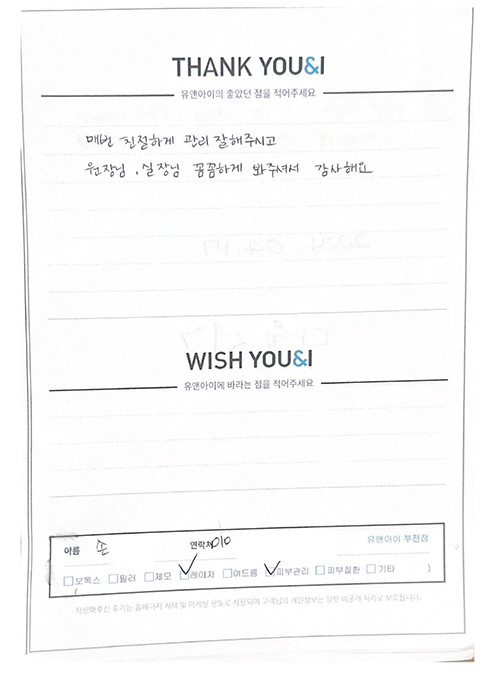 THANK YOU&I
유앤아이의 좋았던 점을 적어주세요
매번 친절하게 관리 잘해주시고
원장님, 실장님 꼼꼼하게 봐주셔서 감사해요
WISH YOU&I
유앤아이에 바라는 점을 적어주세요
이름 손 연락처 010 유앤아이 부전점
보톡스 필러 제모 레이저 여드름 피부관리 피부질환 기타 )
작성해주신 후기는 홈페이지 게재 및 마케팅 용도로 사용되며 고객님의 개인정보는 일부 비공개 처리로 보호됩니다.